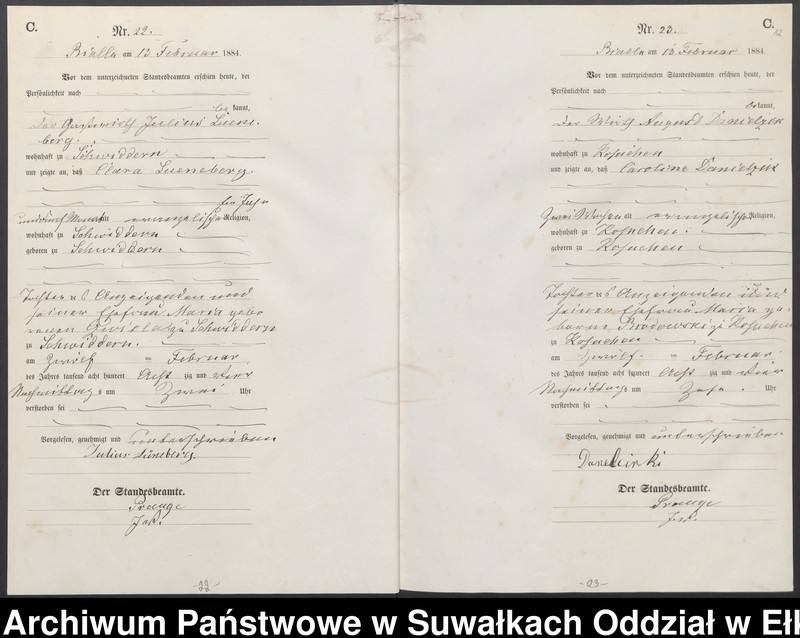 C.
Nr. 22.
Bialla am 13 Februar 1884.
Vor dem unterzeichneten Standesbeamten erschien heute, der
Persönlichkeit nach
be kannt,
der Gastwirth Julius Luene-
berg.
wohnhaft zu Schwiddern
und zeigte an, daß Clara Lueneberg.
ein Jahr
und fünf Monat alt evangelischer Religion,
wohnhaft zu Schwiddern
geboren zu Schwiddern
Tochter des Anzeigenden und
seiner Ehefrau Maria gebo-
renen zu Schwiddern
zu Schwiddern.
am zwölf ten Februar
des Jahres tausend acht hundert acht zig und vier
Nachmittags um zwei Uhr
verstorben sei
Vorgelesen, genehmigt und unterschrieben
Julius Lüneberg.
Der Standesbeamte.
Prange
-22-
C.
12
Nr. 23.
Bialla am 13 Februar 1884.
Vor dem unterzeichneten Standesbeamten erschien heute, der
Persönlichkeit nach
be kannt,
der Wirth August Danielzik
wohnhaft zu Kosuchen
und zeigte an, daß Caroline Danielzik
zwei Wochen alt evangelischer Religion,
wohnhaft zu Kosuchen.
geboren zu Kosuchen
Tochter des Anzeigenden und
seiner Ehefrau Maria ge-
borne Brodowski zu Kosuchen
zu Kosuchen
am zwölf ten Februar
des Jahres tausend acht hundert acht zig und vier
Nachmittags um zehn Uhr
verstorben sei
Vorgelesen, genehmigt und unterschrieben
Der Standesbeamte.
Prange
-23-
Archiwum Państwowe w Suwałkach Oddział w Eł